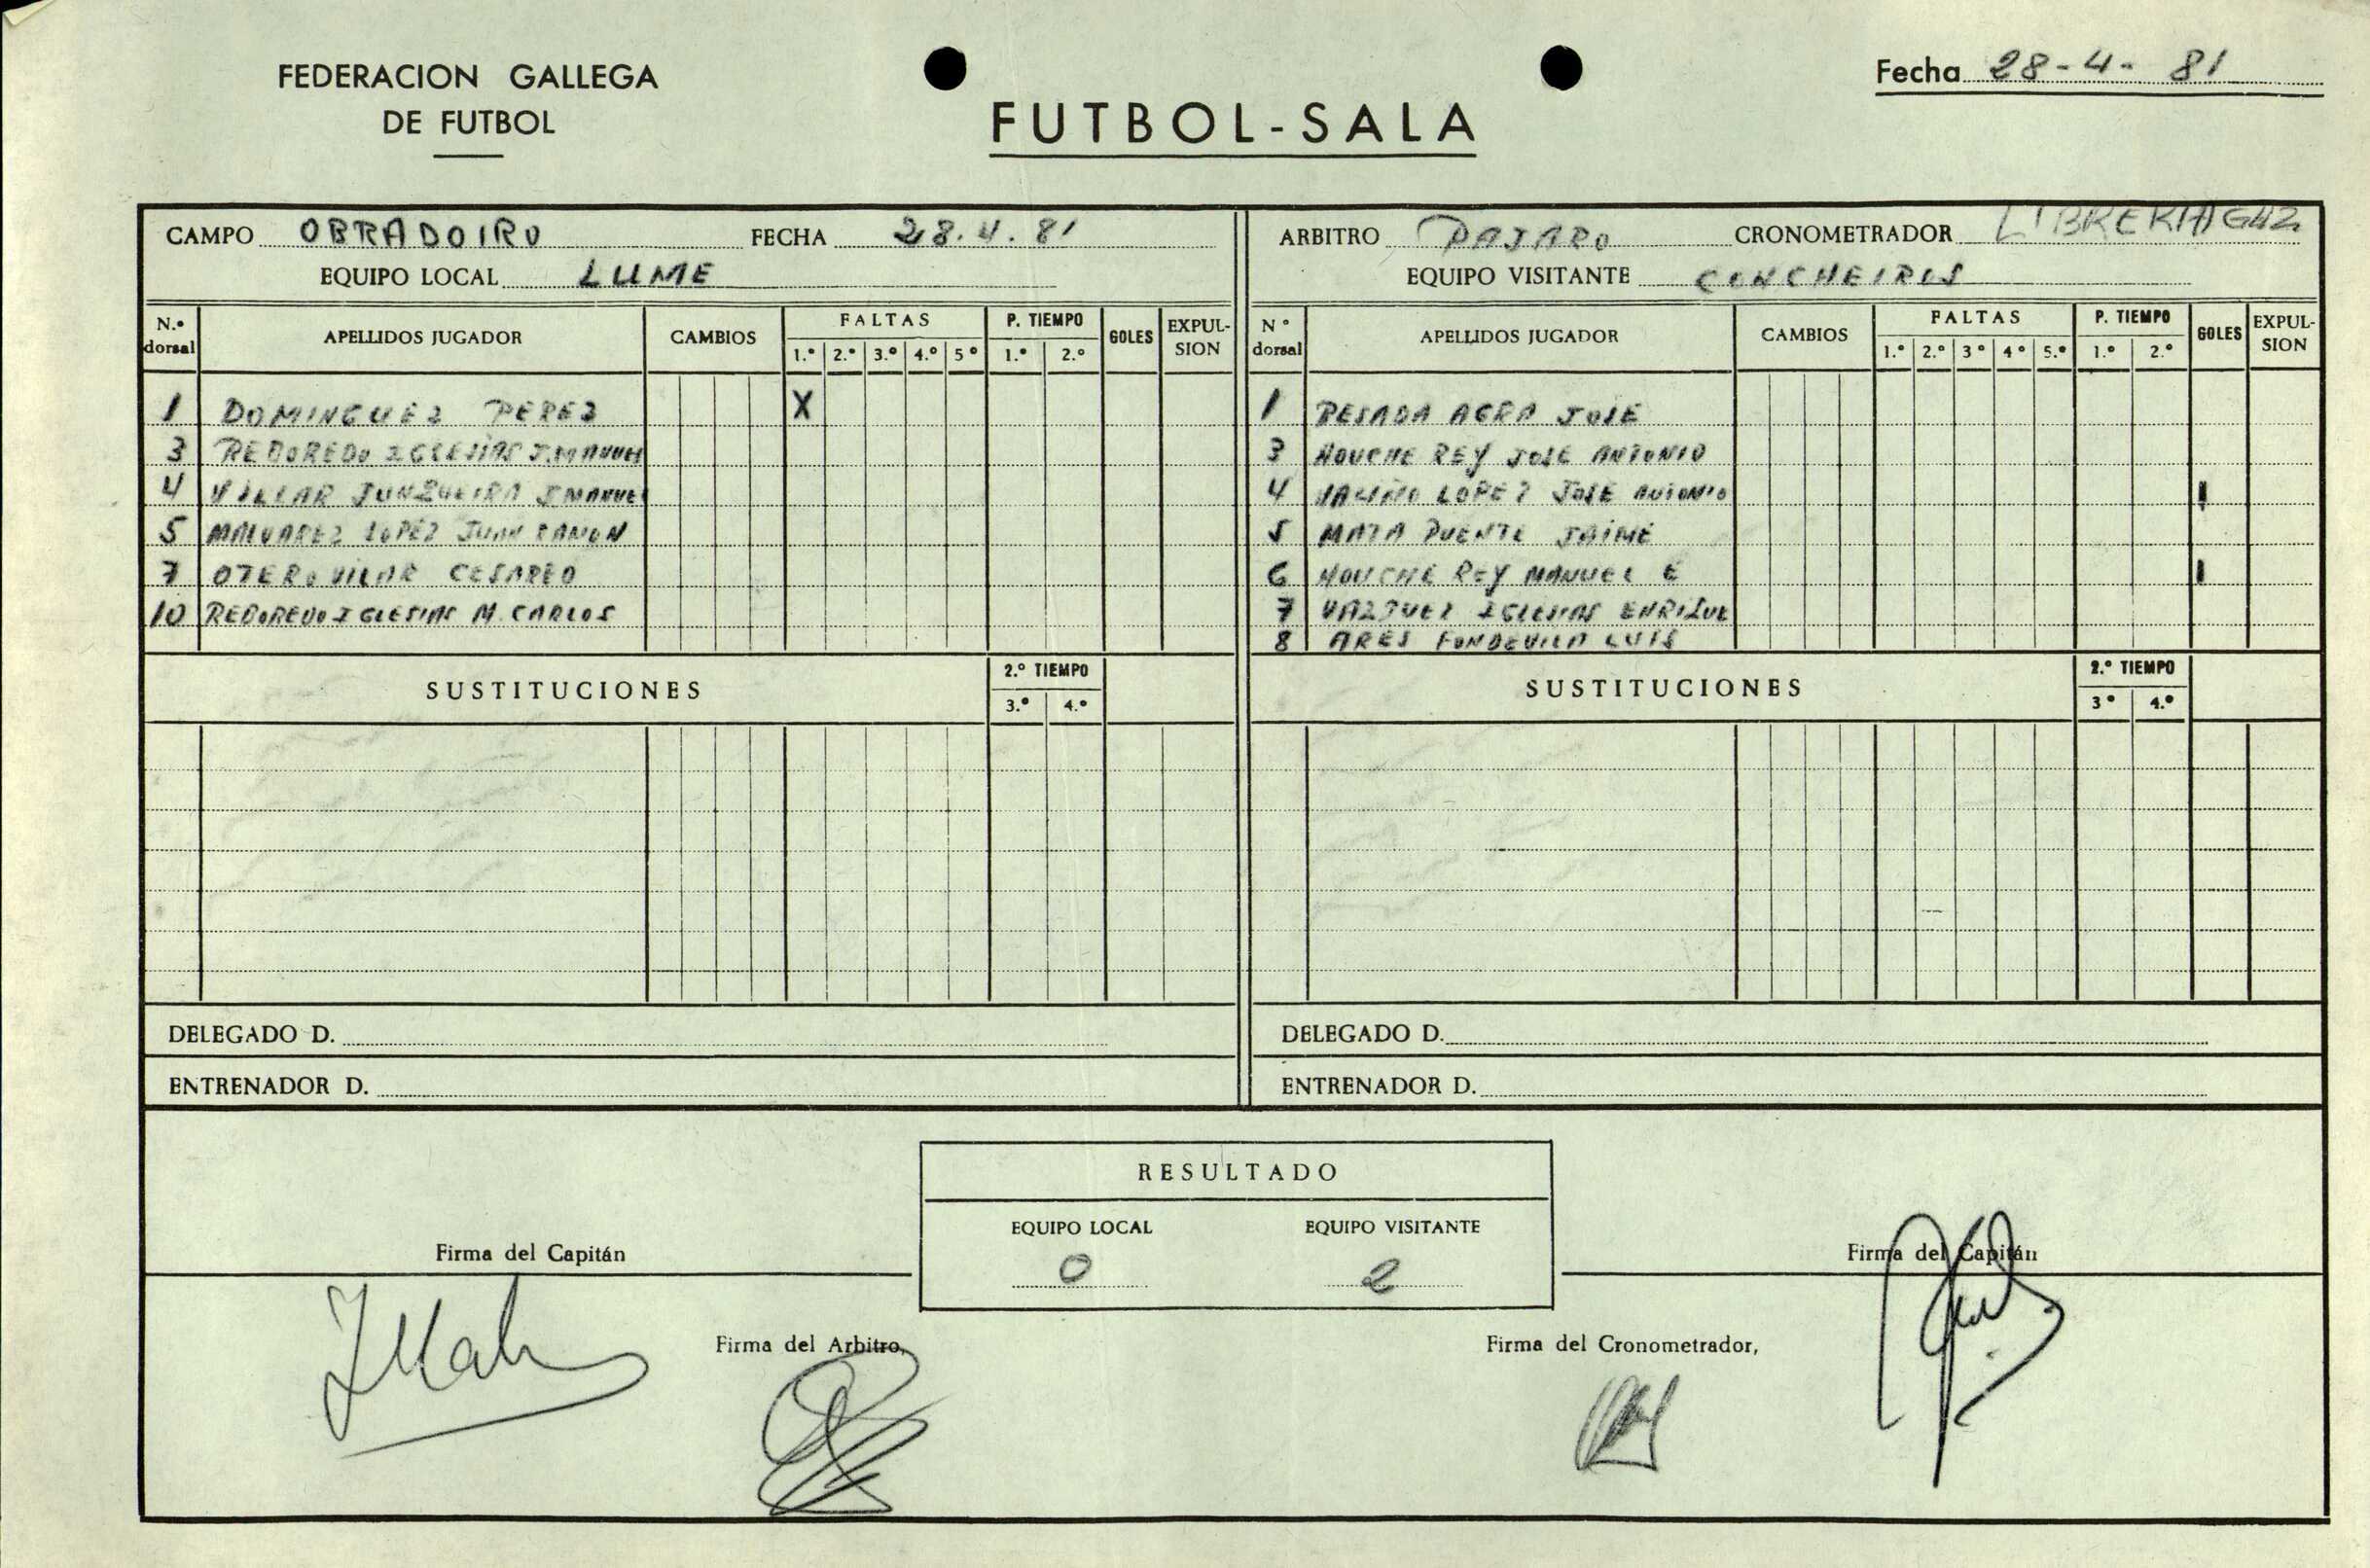 FEDERACION GALLEGA
DE FUTBOL
FUTBOL-SALA
Fecha 28-4-81
CAMPO OBRADOIRO FECHA 28.4.81
EQUIPO LOCAL LUME
ARBITRO PAJARO CRONOMETRADOR
EQUIPO VISITANTE CONCHEIROS
N.º dorsal APELLIDOS JUGADOR CAMBIOS FALTAS 1.º 2.º 3.º 4.º 5º P. TIEMPO 1.º 2.º GOLES EXPULSION
1 DOMINGUEZ PEREZ X
3 REBOREDO IGLESIAS J.MANUEL
4 VILLAR JUNQUEIRA J MANUEL
5 MALVAREZ LOPEZ JUAN RAMON
7 OTERO VILAR CESAREO
10 REBOREDO IGLESIAS M. CARLOS
SUSTITUCIONES 2.º TIEMPO 3.º 4.º
DELEGADO D.
ENTRENADOR D.
Nº dorsal APELLIDOS JUGADOR CAMBIOS FALTAS 1.º 2.º 3º 4º 5.º P. TIEMPO 1.º 2.º GOLES EXPULSION
1 PESADA AGRA JOSE
3 NOUCHE REY JOSE ANTONIO
4 LOPEZ JOSE ANTONIO I
5 MATA PUENTE JAIME
6 NOUCHE REY MANUEL E I
7 VAZQUEZ IGLESIAS ENRIQUE
8 ARES FONDEVILA LUIS
SUSTITUCIONES 2.º TIEMPO 3º 4.º
DELEGADO D.
ENTRENADOR D.
RESULTADO
EQUIPO LOCAL EQUIPO VISITANTE
0 2
Firma del Capitán
Firma del Capitán
Firma del Arbitro,
Firma del Cronometrador,